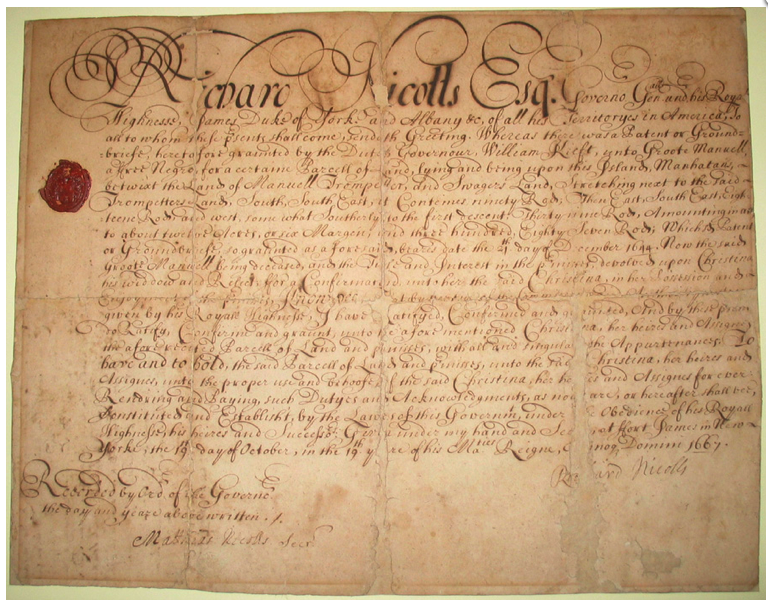 Richard Nicolls Esq. Governo Genall undr his Roya
Highnesse, James Duke of Yorke and Albany &c. of all his Territoryes in America, To
all to whom these psents shall come, sendeth Greeting. Whereas there was a Patent or Ground-
briefe, heretofore graunted by the Dutch Governour William Kieft, unto Groote Manuell
a free Negro, for a certaine Parcell of Land, lying and being upon this Island, Manhatans,
betwixt the Land of Manuell Trompetter, and Swagers Land, stretching next to the said
Trompetters Land, South, South, East, it Conteines ninety Rod; Then East, South East, Eigh-
teene Rod, and west, some what Southerly to the first descent, Thirty nine Rod, Amounting in all
to about twelve Acres, or six Margen, and three hundred, Eighty seven Rod; Which Patent
or Groundbriefe, so graunted as aforesaid, beares date the day of December 1644. Now the said
Groote Manuell being deceased, and the Title and Interest in the pmisses, devolved upon Christina
his widdow and Relict, for a Confirmation unto her the said Christina, in her Possession and
Enjoyment of the Pmisses, Know yee that by vertue of the Commission and
given by his Royall Highnesse, I have Ratifyed, Confirmed and graunted, And by these psents
do Ratify, Confirme and graunt, unto the afore mentioned Christina, her heires and Assignes
the afore recited Parcell of Land and pmisses, with all and singular the Appurtenances. To
have and to hold, the said Parcell of Land and Pmisses, unto the said Christina, her heires and
Assignes, unto the proper use and behoofe of the said Christina, her heires and Assignes for ever.
Rendring and Paying, such Dutyes and Acknowledgments, as now are, or hereafter shall be,
Constituted and Establisht, by the Lawes of this Governmt, under the Obedience of his Royall
Highnesse, his heires and Successrs Given under my hand and Seale at Fort James in New
Yorke, the day of October, in the 19th yeare of his Maties Reigne, Annoq Domini 1667.
Richard Nicolls
Recorded by Ordr of the Governor
the day and yeare above written.
Matthias Nicolls Secr